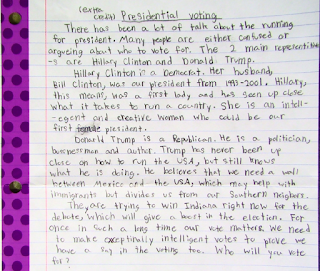 (extra
credit) Presidential voting
There has been a lot of talk about the running
for president. Many people are either confused or
argueing about who to vote for. The 2 main representitive
-s are Hillary Clinton and Donald Trump.
Hillary Clinton is a Democrat. Her husband,
Bill Clinton, was our president from 1993-2001. Hillary,
this means, was a first lady and has seen up close
what it takes to run a country. She is an intell-
-egent and creative woman who could be our
first female president.
Donald Trump is a Republican. He is a politician,
businessman and author. Trump has never been up
close on how to run the USA, but still knows
what he is doing. He believes that we need a wall
between Mexico and the USA, which may help with
immigrants but divides us from our Southern neighbors.
They are trying to win Indiana right now for the
debate, which will give a boost in the election. For
once in such a long time our vote matters. We need
to make exceptinally intelligent votes to prove we
have a say in the voting too. Who will you vote
for?